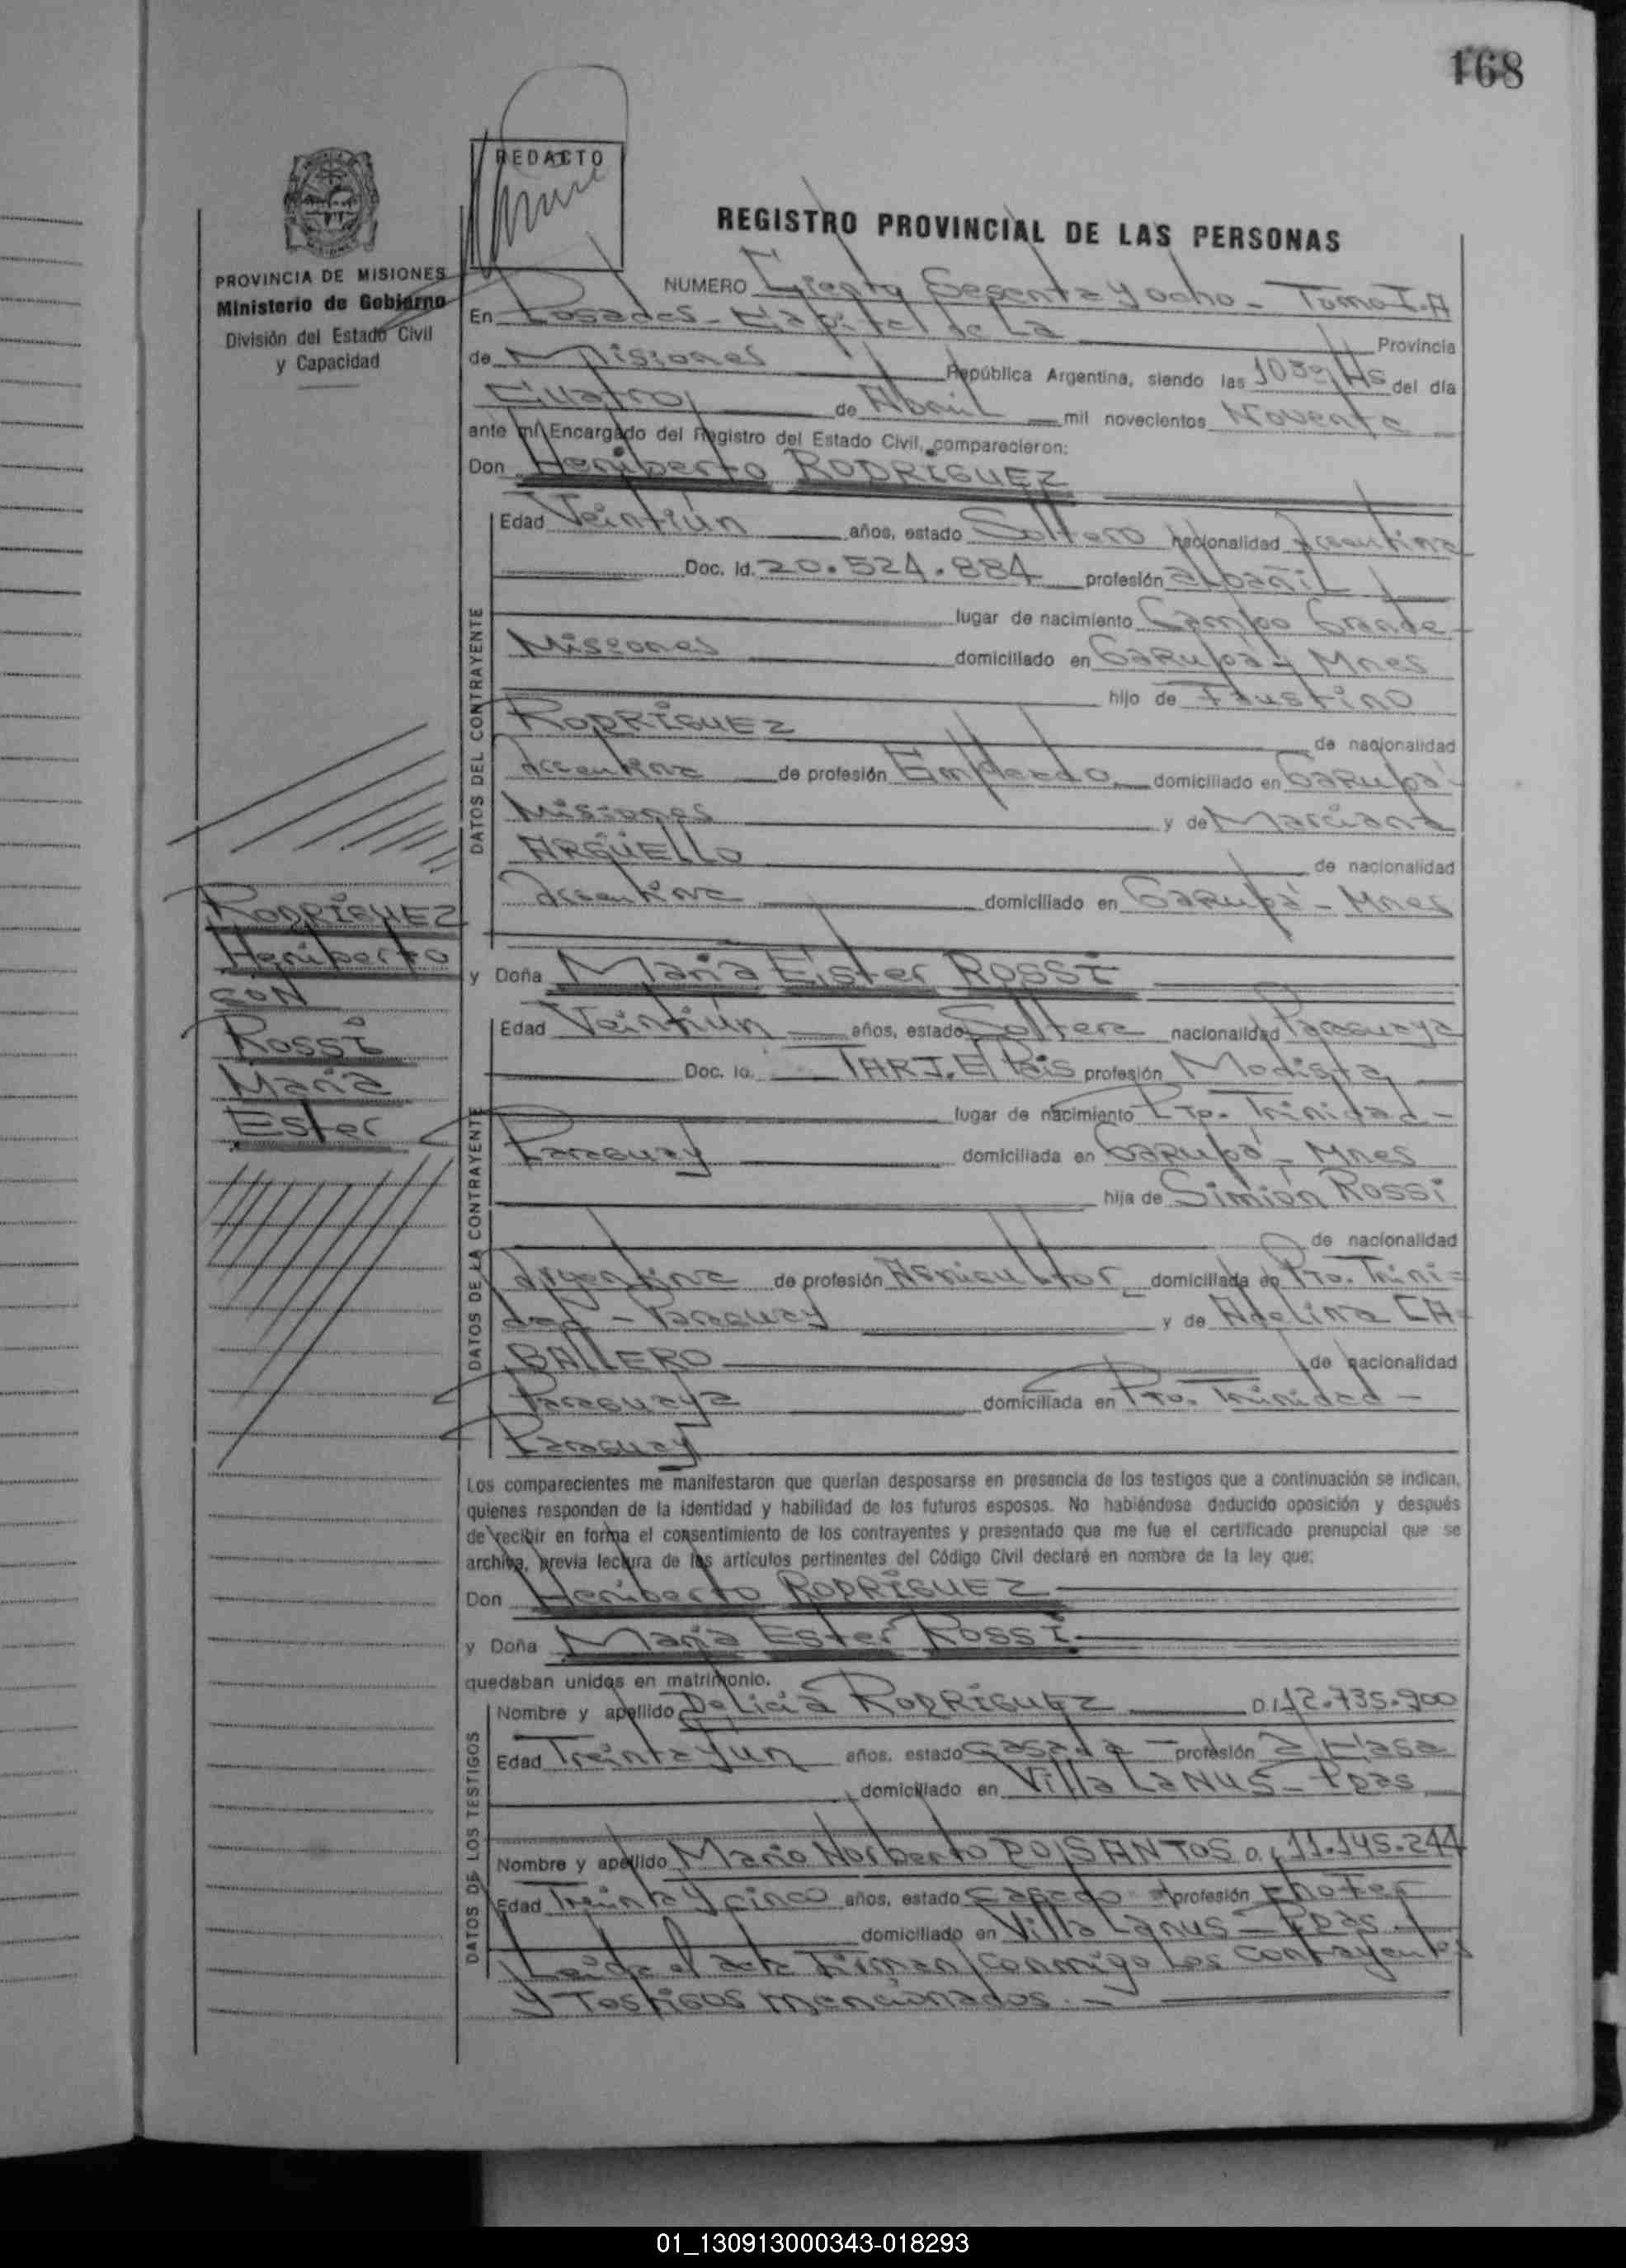 168
REDACTO
REGISTRO PROVINCIAL DE LAS PERSONAS
PROVINCIA DE MISIONES
Ministerio de Gobierno
División del Estado Civil
y Capacidad
NUMERO Ciento Sesenta y ocho - Tomo I.A
En Posadas - Capital de La Provincia
de Misiones República Argentina, siendo las 1030 Hs del día
Cuatro de Abril mil novecientos Noventa
ante mí Encargado del Registro del Estado Civil, comparecieron:
Don Heriberto RODRIGUEZ
DATOS DEL CONTRAYENTE
Edad Veintiún años, estado Soltero nacionalidad Argentina
Doc. Id. 20.524.884 profesión albañil
lugar de nacimiento Campo Grande -
Misiones domiciliado en Garupá - Mnes
hijo de Faustino
RODRIGUEZ de nacionalidad
Argentina de profesión Empleado domiciliado en Garupá -
Misiones y de Marciana
ARGÜELLO de nacionalidad
Argentina domiciliado en Garupá - Mnes
RODRIGUEZ
Heriberto
CON
ROSSI
Maria
Ester
y Doña Maria Ester ROSSI
DATOS DE LA CONTRAYENTE
Edad Veintiún años, estado Soltera nacionalidad Paraguaya
Doc. Id. TARJ. El Pais profesión Modista
lugar de nacimiento Pto. Trinidad -
Paraguay domiciliada en Garupá - Mnes
hija de Simión Rossi
de nacionalidad
Argentina de profesión Agricultor domiciliada en Pto. Trini=
dad - Paraguay y de Adelina CA=
BALLERO de nacionalidad
Paraguaya domiciliada en Pto. Trinidad -
Paraguay
Los comparecientes me manifestaron que querían desposarse en presencia de los testigos que a continuación se indican,
quienes responden de la identidad y habilidad de los futuros esposos. No habiéndose deducido oposición y después
de recibir en forma el consentimiento de los contrayentes y presentado que me fue el certificado prenupcial que se
archiva, previa lectura de los artículos pertinentes del Código Civil declaré en nombre de la ley que:
Don Heriberto RODRIGUEZ
y Doña Maria Ester ROSSI
quedaban unidos en matrimonio.
DATOS DE LOS TESTIGOS
Nombre y apellido Delicia RODRIGUEZ D.I. 12.735.900
Edad Treinta y un años, estado Casada - profesión q/casa
domiciliado en Villa LANUS - Pdas
Nombre y apellido Mario Norberto DO/SANTOS D.I. 11.145.244
Edad Treinta y cinco años, estado Casado profesión Chofer
domiciliado en Villa Lanus - Pdas.
Leida el acta Firman conmigo los contrayentes
y Testigos mencionados. -
01_130913000343-018293